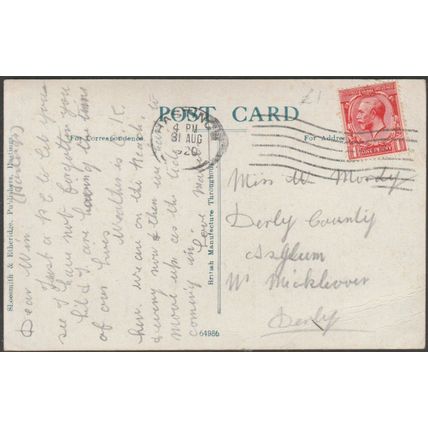 POST CARD
For Correspondence
For Address
Shoesmith & Etheridge, Publishers, Hastings.
British Manufacture Throughout
64986
£1
4 PM
31 AUG
20
Dear Win
Just a P.C. to let you
see I have not forgotten you
Lil & I are having the time
of our lives. Weather is 1C.
here we are on the beach,
& every now & then we have to
move up as the tide is
coming in. Love
Miss W. Moody
Derby County
Asylum
Nr Mickleover
Derby